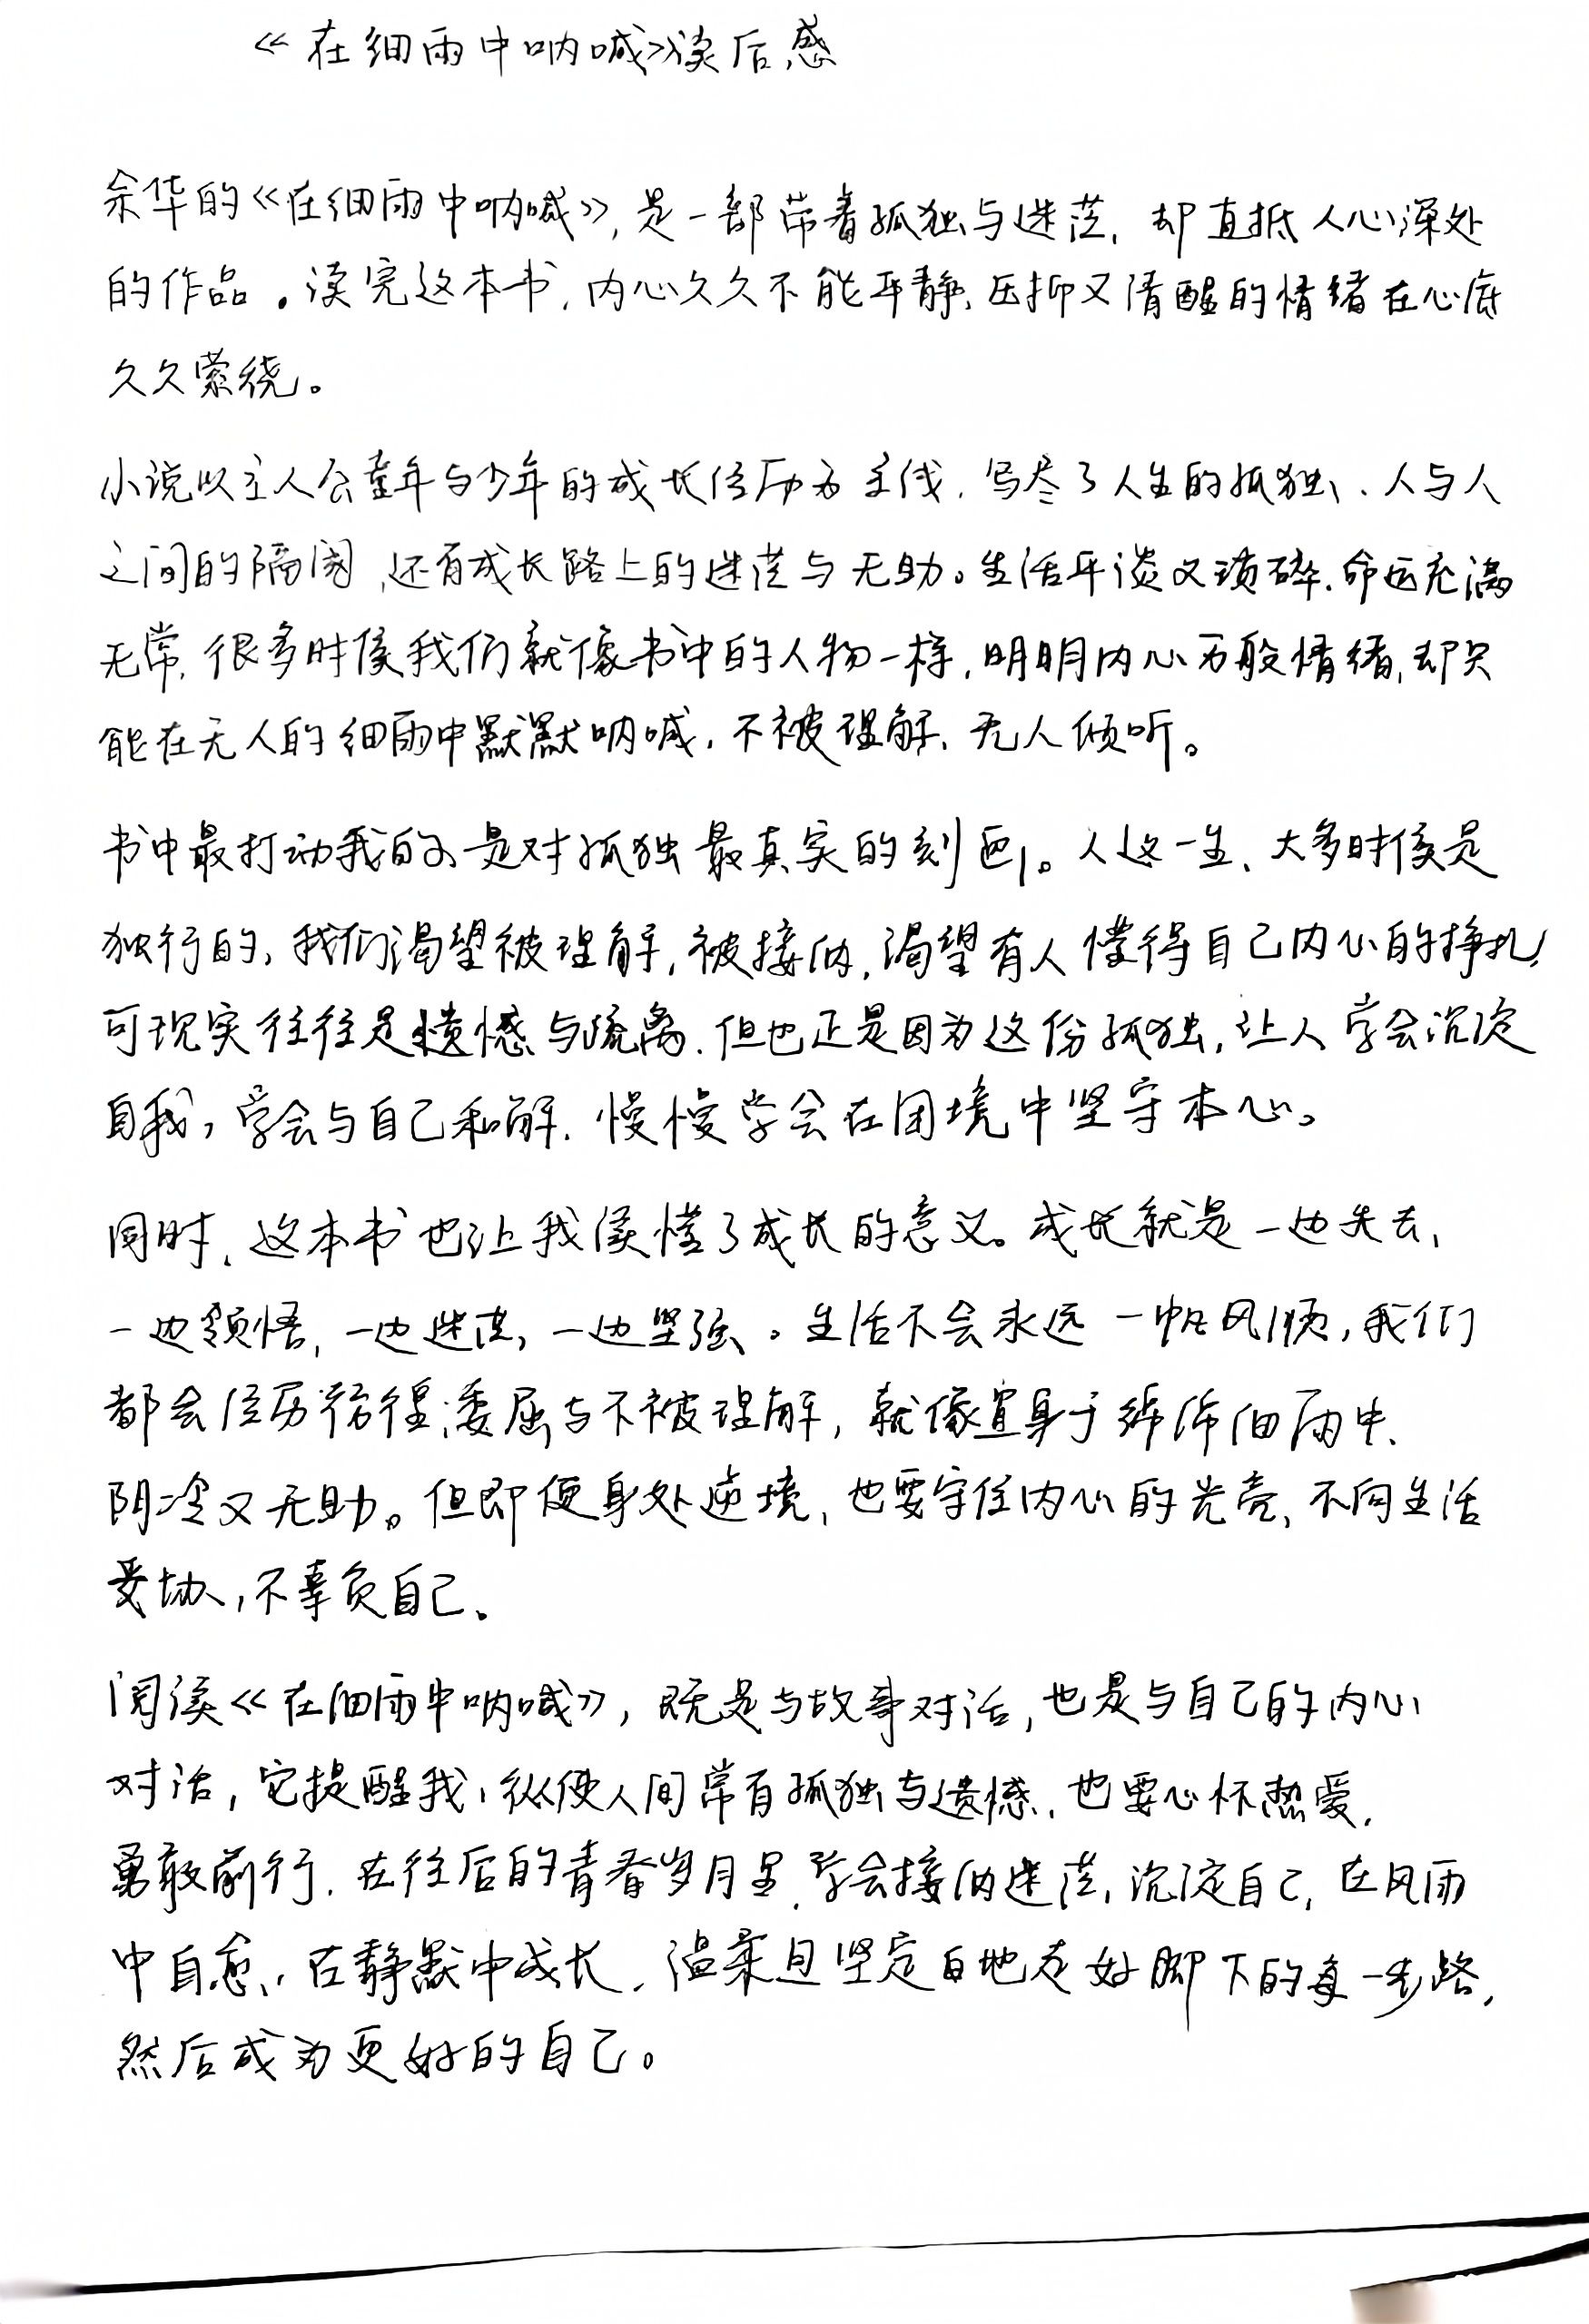 《在细雨中呐喊》读后感
余华的《在细雨中呐喊》，是一部带着孤独与迷茫，却直抵人心深处
的作品。读完这本书，内心久久不能平静，压抑又清醒的情绪在心底
久久萦绕。
小说以主人公童年与少年的成长经历为主线，写尽了人生的孤独、人与人
之间的隔阂，还有成长路上的迷茫与无助。生活平淡又琐碎，命运充满
无常，很多时候我们就像书中的人物一样，明明内心万般情绪，却只
能在无人的细雨中默默呐喊，不被理解、无人倾听。
书中最打动我的是对孤独最真实的刻画。人这一生、大多时候是
独行的，我们渴望被理解，被接纳，渴望有人懂得自己内心的挣扎，
可现实往往是遗憾与疏离，但也正是因为这份孤独，让人学会沉淀
自我，学会与自己和解，慢慢学会在困境中坚守本心。
同时，这本书也让我读懂了成长的意义。成长就是一边失去，
一边领悟，一边迷茫，一边坚强。生活不会永远一帆风顺，我们
都会经历彷徨、委屈与不被理解，就像置身于绵绵细雨中、
阴冷又无助。但即便身处逆境，也要守住内心的光亮，不向生活
妥协，不辜负自己。
阅读《在细雨中呐喊》，既是与故事对话，也是与自己的内心
对话，它提醒我，纵使人间常有孤独与遗憾，也要心怀热爱，
勇敢前行，在往后的青春岁月里，学会接纳迷茫，沉淀自己，在风雨
中自愈，在静默中成长，温柔且坚定自地走好脚下的每一步路，
然后成为更好的自己。